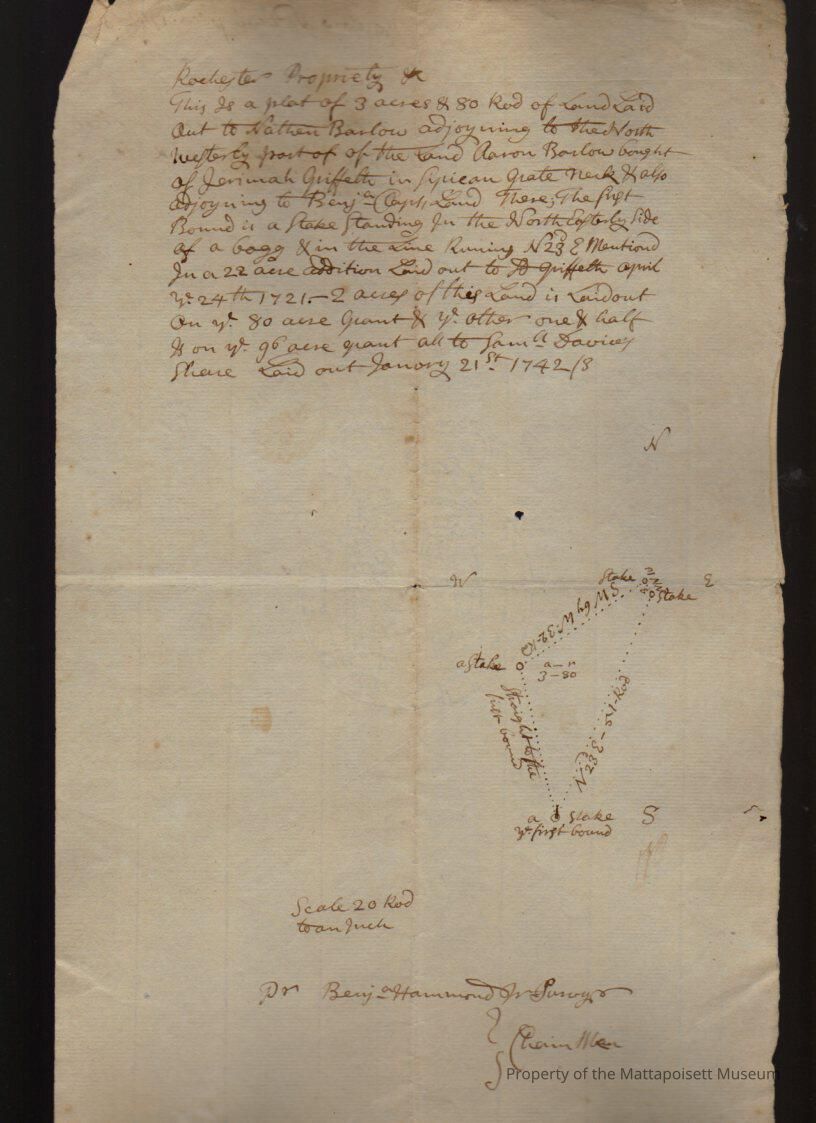 Rochester Propriety &
This Is a plat of 3 acres & 80 Rod of Land Laid
Out to Nathan Barlow adjoyning to the North
westerly part of of the Land Aaron Barlow bought
of Jerimah Griffeth in Sipican Grate Neck & also
adjoyning to Benja Claps Land There; The first
Bound is a Stake Standing In the North Esterly Side
of a bogg & in the Line Runing N 23d E Mentiond
In a 22 acre addition Laid out to Griffeth april
ye 24th 1721.- 2 acres of this Land is Laid out
On ye 80 acre Grant & ye other one & half
Is on ye 96 acre grant all to Samll Davises
Share Laid out Janory 21st 1742/3
N
W
Stake
E
Stake
SW by W: 32 - R
a Stake
a - r
3 - 80
Straight to the
first bound
N 23d E - 51 - Rod
a Stake
S
ye first bound
Scale 20 Rod
to an Inch
Pr Benja Hammond Jr Survoyr
Chain Men
Property of the Mattapoisett Museum